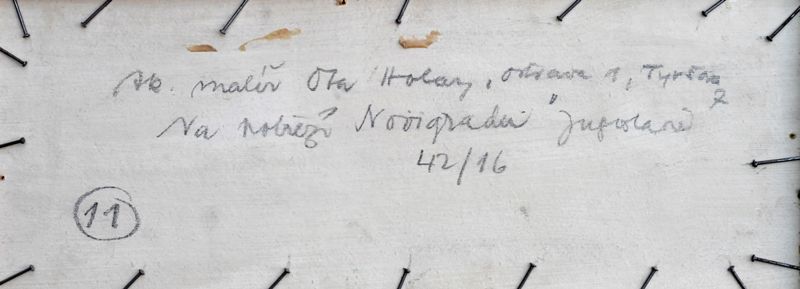 Ak. malíř Ota Holas, Ostrava 1, Tyršova
7
Na pobřeží Novigradu "Jugoslavie"
42/16
11